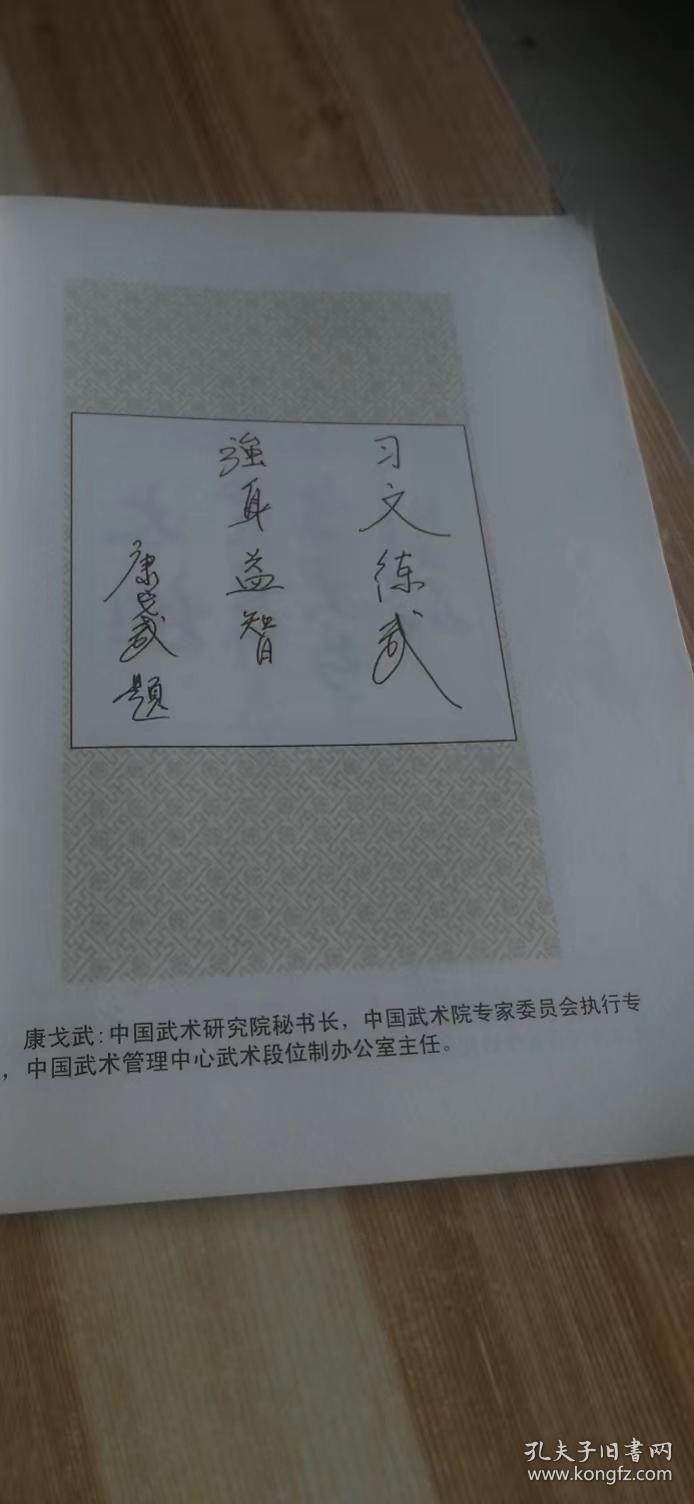 习文练武
强身益智
康戈武题
康戈武:中国武术研究院秘书长，中国武术院专家委员会执行专
，中国武术管理中心武术段位制办公室主任。
孔夫子旧书网
www.kongfz.com